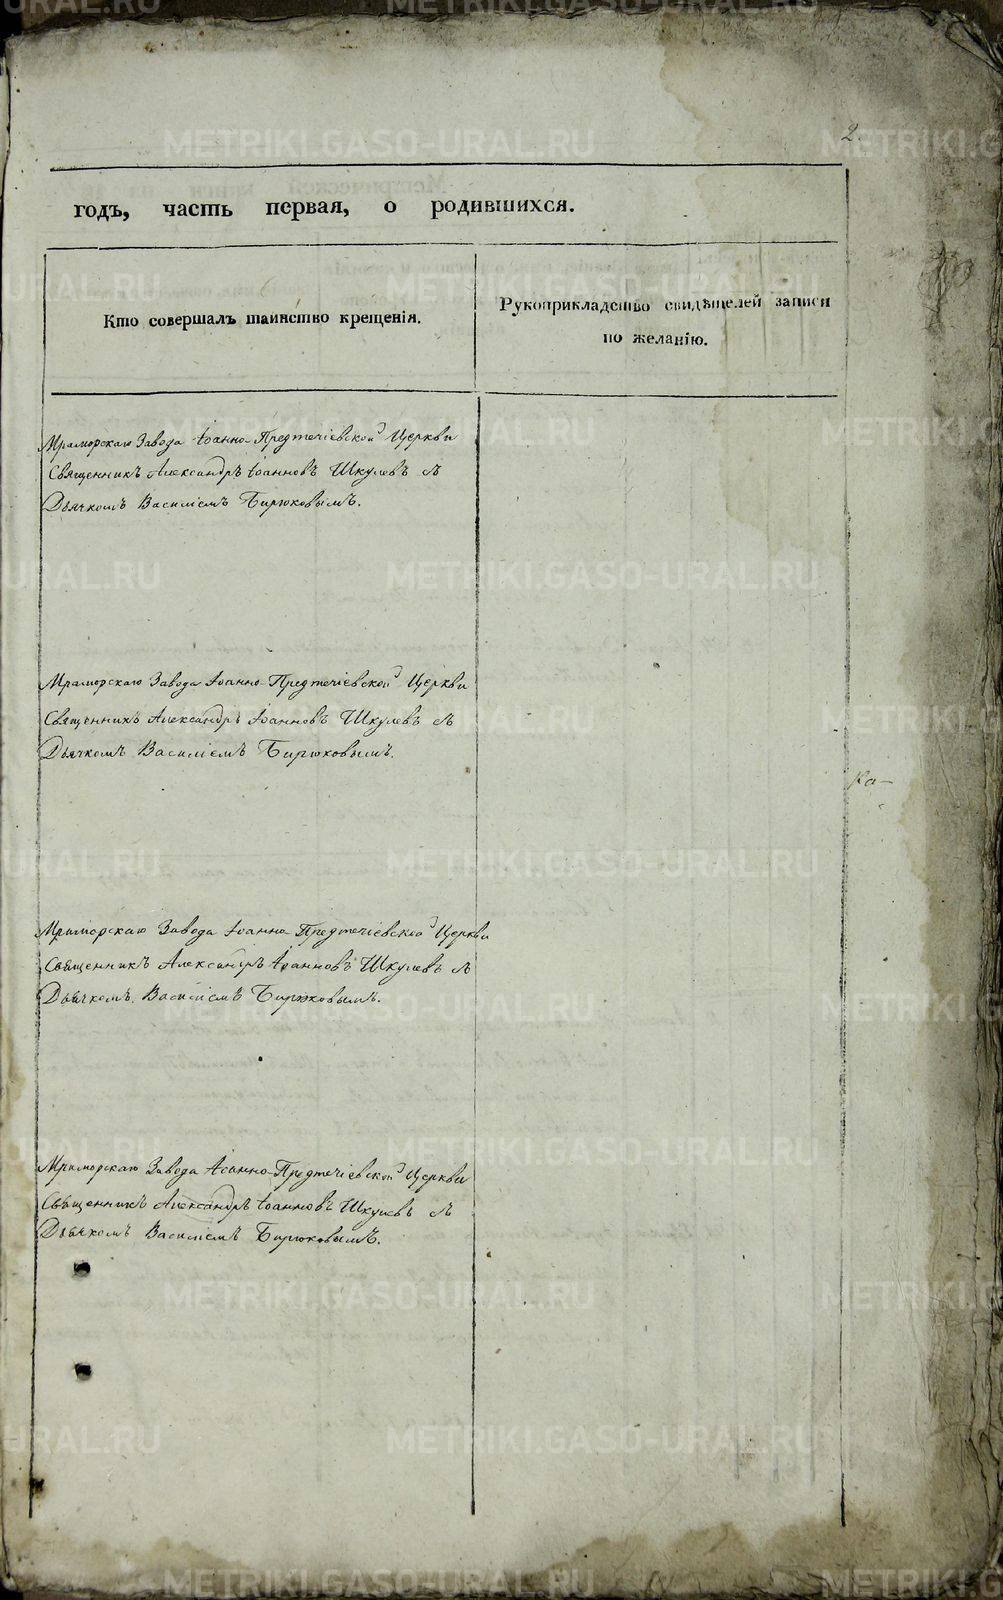 2
годъ, часть первая, о родившихся.
Кто совершалъ таинство крещенія.
Рукоприкладство свидѣтелей записи
по желанію.
Мраморскаго Завода Іоанно-Предтечіевской Церкви
Священникъ Александръ Іоанновъ Шкулевъ съ
Дьячкомъ Василіемъ Бирюковымъ.
Мраморскаго Завода Іоанно-Предтечіевской Церкви
Священникъ Александръ Іоанновъ Шкулевъ съ
Дьячкомъ Василіемъ Бирюковымъ.
Ка-
Мраморскаго Завода Іоанно Предтечіевской Церкви
Священникъ Александръ Іоанновъ Шкулевъ съ
Дьячкомъ Василіемъ Бирюковымъ.
Мраморскаго Завода Іоанно-Предтечіевской Церкви
Священникъ Александръ Іоанновъ Шкулевъ съ
Дьячкомъ Василіемъ Бирюковымъ.
METRIKI.GASO-URAL.RU